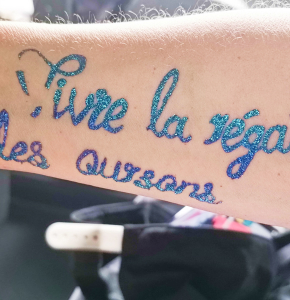 Vivre la réga
les oursons